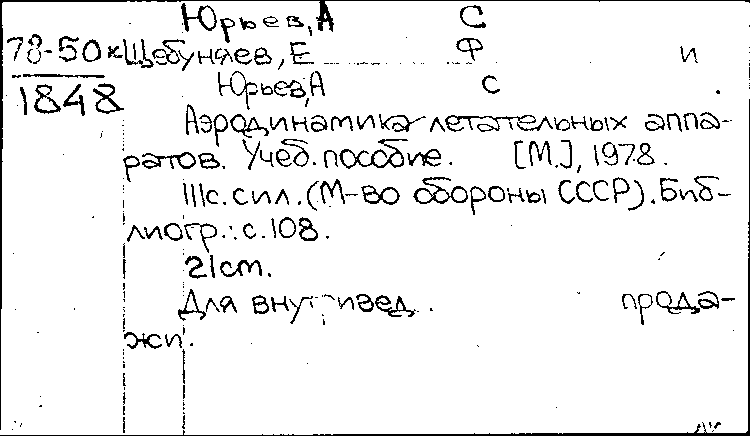 Юрьев, А С
78-50к Щебуняев, Е Ф и
1848 Юрьев, А С .
Аэродинамика летательных аппа-
ратов. Учеб. пособие. [М.], 1978.
111с. с ил. (М-во обороны СССР). Биб-
лиогр.: с. 108.
21 cm.
Для внутривед. прода-
жи.